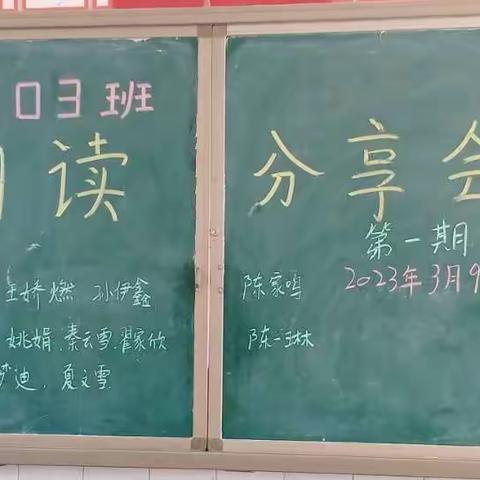 03班
读 分享会
第一期
2023年3月9
王娇燃 孙伊鑫 陈家鸣
姚娟.秦云雪.翟家欣 陈一琳
梦迪, 夏文雪